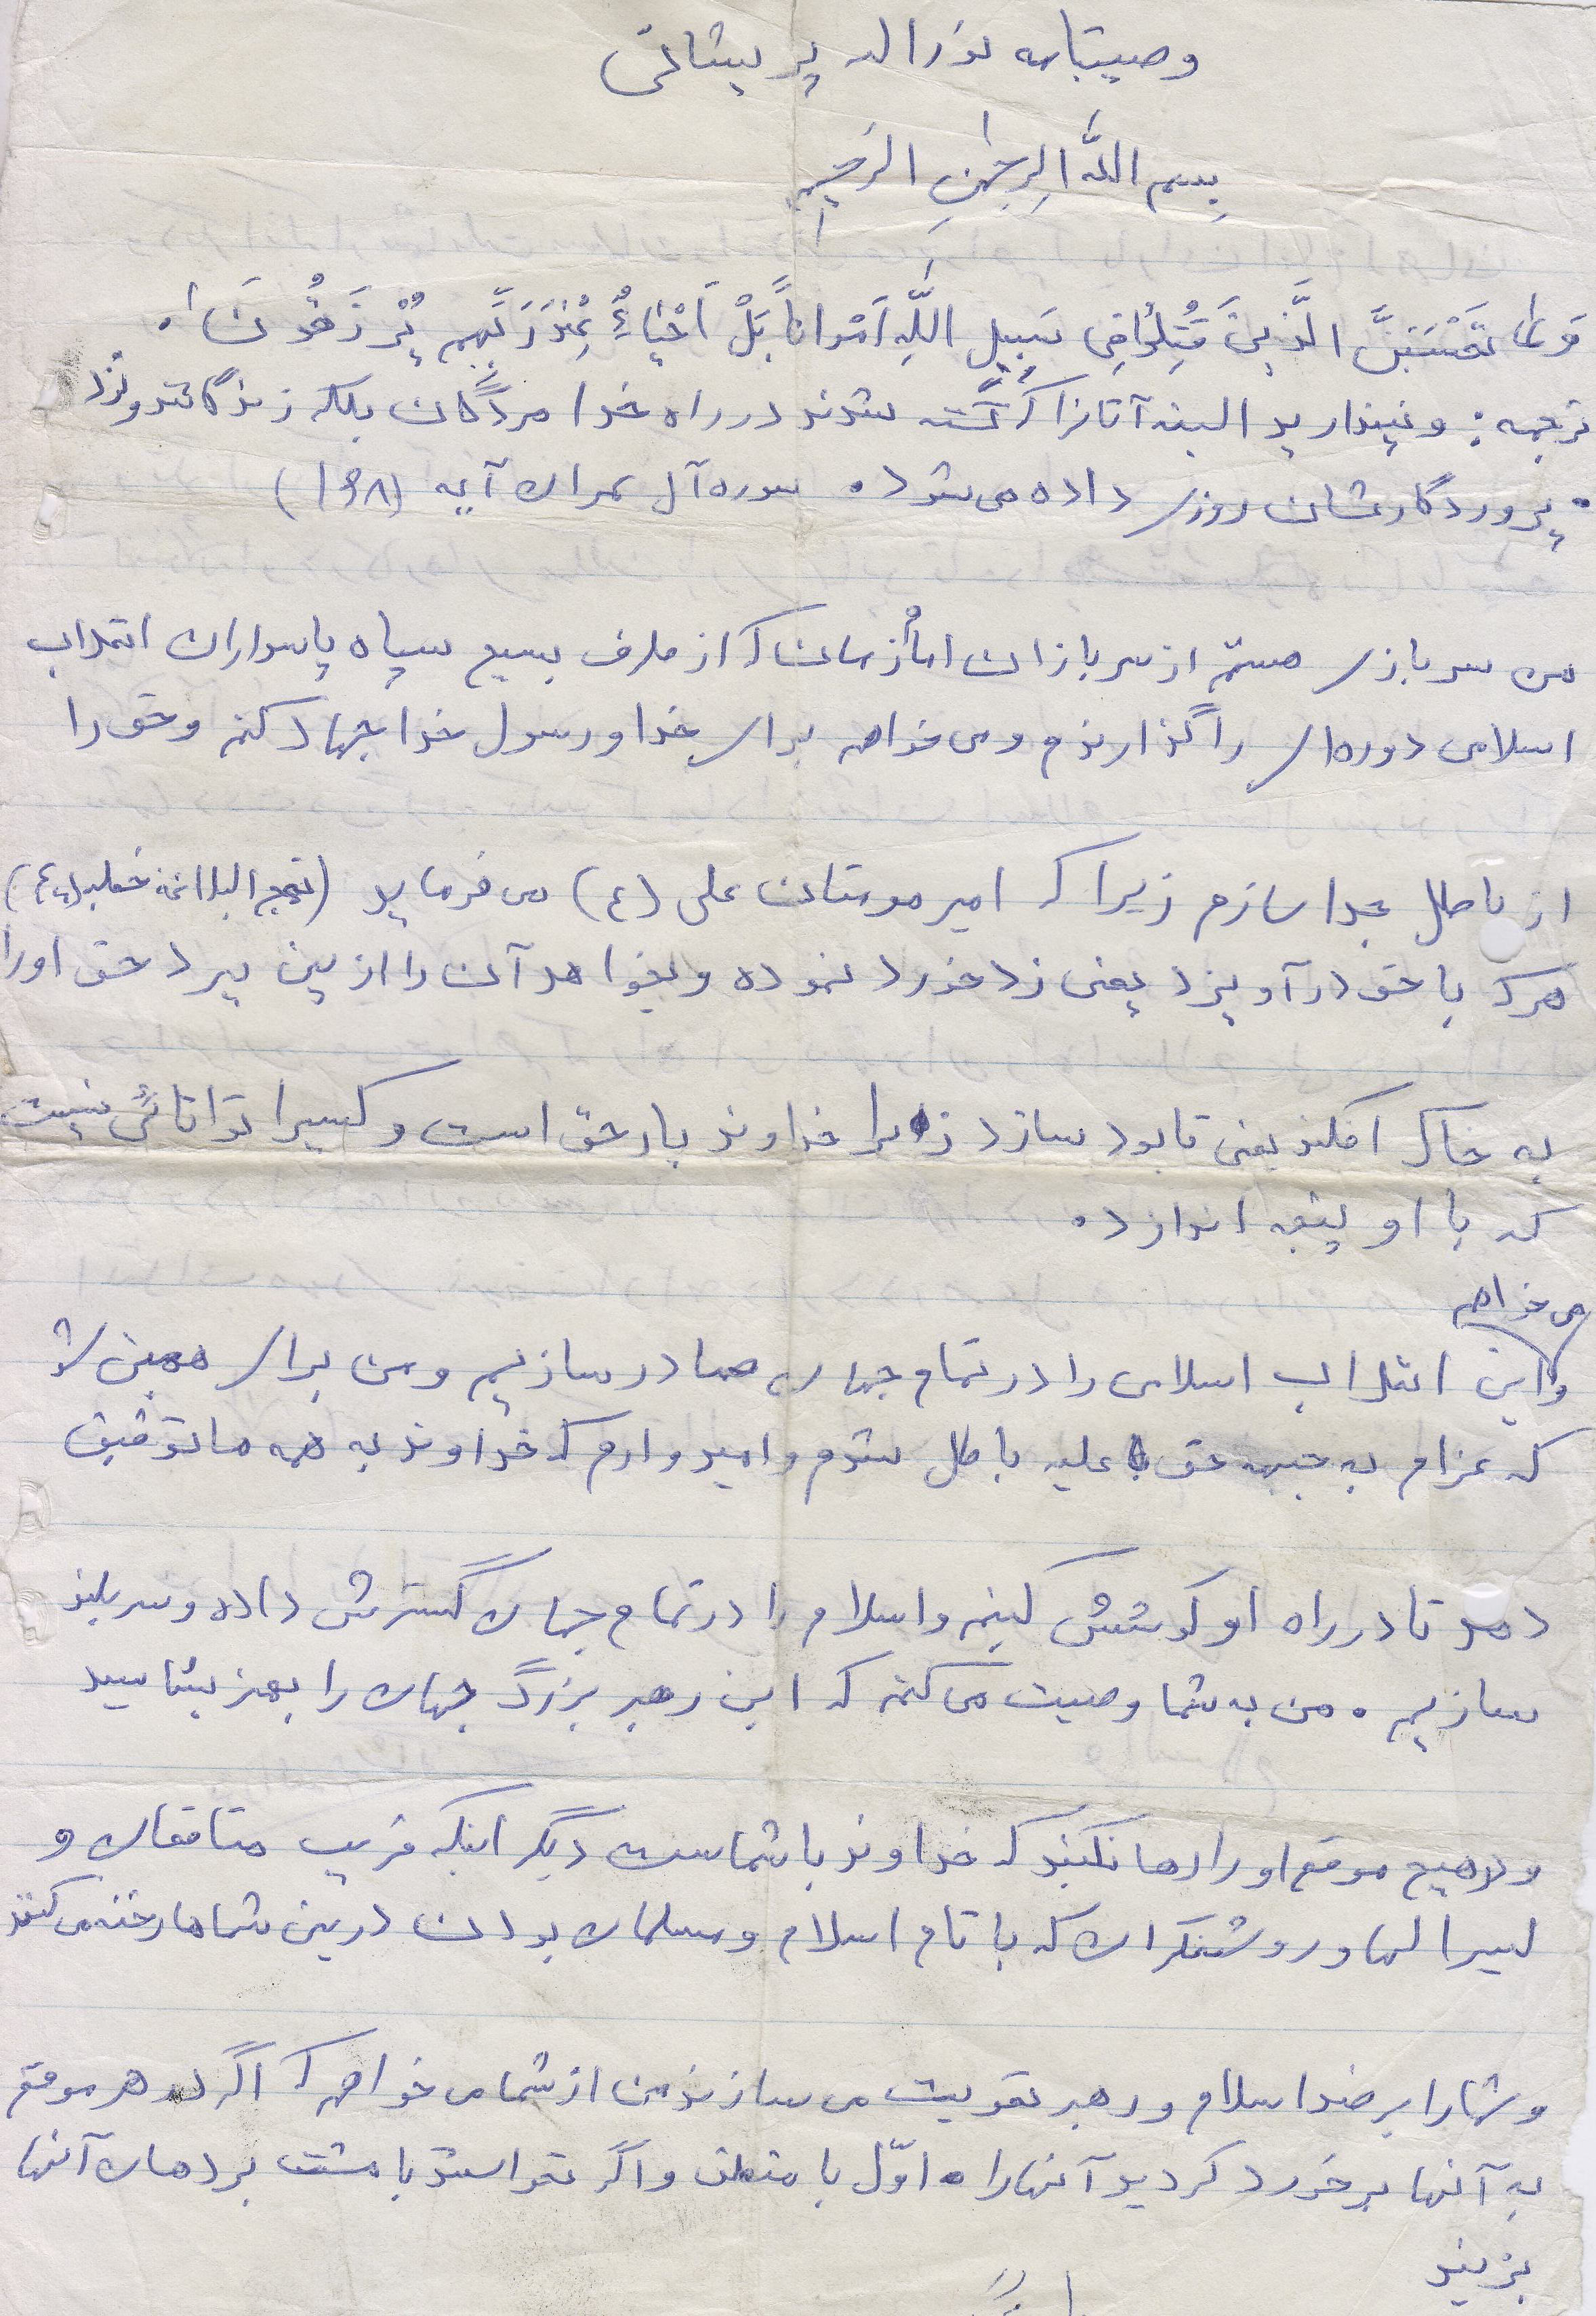 وصیتنامه نورالله پریشانی
بِسم اللهِ الرحمٰنِ الرحیم
وَلا تَحْسَبَنَّ الَّذینَ قُتِلُوا فی سَبیلِ اللّٰهِ اَمْواتاً بَلْ اَحْیاءٌ عِنْدَ رَبِّهِم یُرْزَقُونَ.
ترجمه: و نپندارید البته آنانرا که کُشته شدند در راه خدا مردگان بلکه زندگانند و نزد
پروردگارشان روزی داده می شود. سوره آل عمران آیه (۱۶۸)
من سربازی هستم از سربازان امام زمان که از طرف بسیج سپاه پاسداران انقلاب
اسلامی دوره ای را گذارندم و می خواهم برای خدا و رسول خدا جهاد کنم و حق را
از باطل جدا سازم زیرا که امیر مومنان علی (ع) می فرماید (نهج البلاغه خطبه )
هر که با حق درآویزد یعنی زد خورد نموده و بخواهد آن را از بین ببرد حق او را
به خاک افکند یعنی نابود سازد زیرا خداوند یار حق است و کسیرا توانائی نیست
که با او پنجه اندازد.
می خواهم
و این انقلاب اسلامی را در تمام جهان صادر سازیم و من برای همین
که عزام به جبهه حق علیه باطل شدم و امیدوارم که خداوند به همه ما توفیق
دهد تا در راه او کوشش کینم و اسلام را در تمام جهان گسترش داده و سربلند
سازیم. من به شما وصیت می کنم که این رهبر بزرگ جهان را بهتر بشناسید
و هیچ موقع او را رها نکنید که خداوند با شماست دیگر اینکه فریب منافقان و
لیبرالها و روشنفکران که با نام اسلام و مسلمان بودن در بین شماها رخنه می کنند
و شما را بر ضد اسلام و رهبر تقویت می سازند من از شما می خواهم که اگر در هر موقع
به آنها برخورد کردید آنها را اوّل با منطق و اگر نتوانستید با مشت بر دهان آنها
بزنید